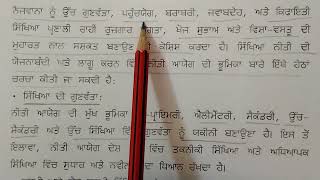 ਨੌਜਵਾਨਾਂ ਨੂੰ ਉੱਚ ਗੁਣਵੱਤਾ, ਪਹੁੰਚਯੋਗ, ਬਰਾਬਰੀ, ਜਵਾਬਦੇਹ, ਅਤੇ ਕਿਫਾਇਤੀ
ਸਿੱਖਿਆ ਪ੍ਰਣਾਲੀ ਰਾਹੀਂ ਰੁਜ਼ਗਾਰ ਖੋਜ ਸੁਭਾਅ ਅਤੇ ਵਿਸ਼ਾ-ਵਸਤੂ ਦੀ
ਮੁਹਾਰਤ ਨਾਲ ਸਸ਼ਕਤ ਬਣਾਉਣ ਕੋਸ਼ਿਸ਼ ਕਰਦਾ ਹੈ। ਸਿੱਖਿਆ ਨੀਤੀ ਦੀ
ਯੋਜਨਾਬੰਦੀ ਅਤੇ ਲਾਗੂ ਕਰਨ ਵਿੱਚ ਨੀਤੀ ਆਯੋਗ ਦੀ ਭੂਮਿਕਾ ਬਾਰੇ ਇੱਥੇ ਹੇਠਾਂ
ਚਰਚਾ ਕੀਤੀ ਜਾ ਸਕਦੀ ਹੈ:
• ਸਿੱਖਿਆ ਦੀ ਗੁਣਵੱਤਾ:
ਨੀਤੀ ਆਯੋਗ ਦੀ ਮੁੱਖ ਭੂਮਿਕਾ ਪ੍ਰਾਇਮਰੀ, ਐਲੀਮੈਂਟਰੀ, ਸੈਕੰਡਰੀ, ਉੱਚ-
ਸੈਕੰਡਰੀ ਅਤੇ ਉੱਚ ਸਿੱਖਿਆ ਵਿੱਚ ਗੁਣਵੱਤਾ ਨੂੰ ਯਕੀਨੀ ਬਣਾਉਣਾ ਹੈ। ਇਸ ਤੋਂ
ਇਲਾਵਾ, ਨੀਤੀ ਆਯੋਗ ਦੇਸ਼ ਵਿੱਚ ਤਕਨੀਕੀ ਸਿੱਖਿਆ ਅਤੇ ਅਧਿਆਪਕ
ਸਿੱਖਿਆ ਵਿੱਚ ਸੁਧਾਰ ਅਤੇ ਧਿਆਨ ਰੱਖਦਾ ਹੈ।